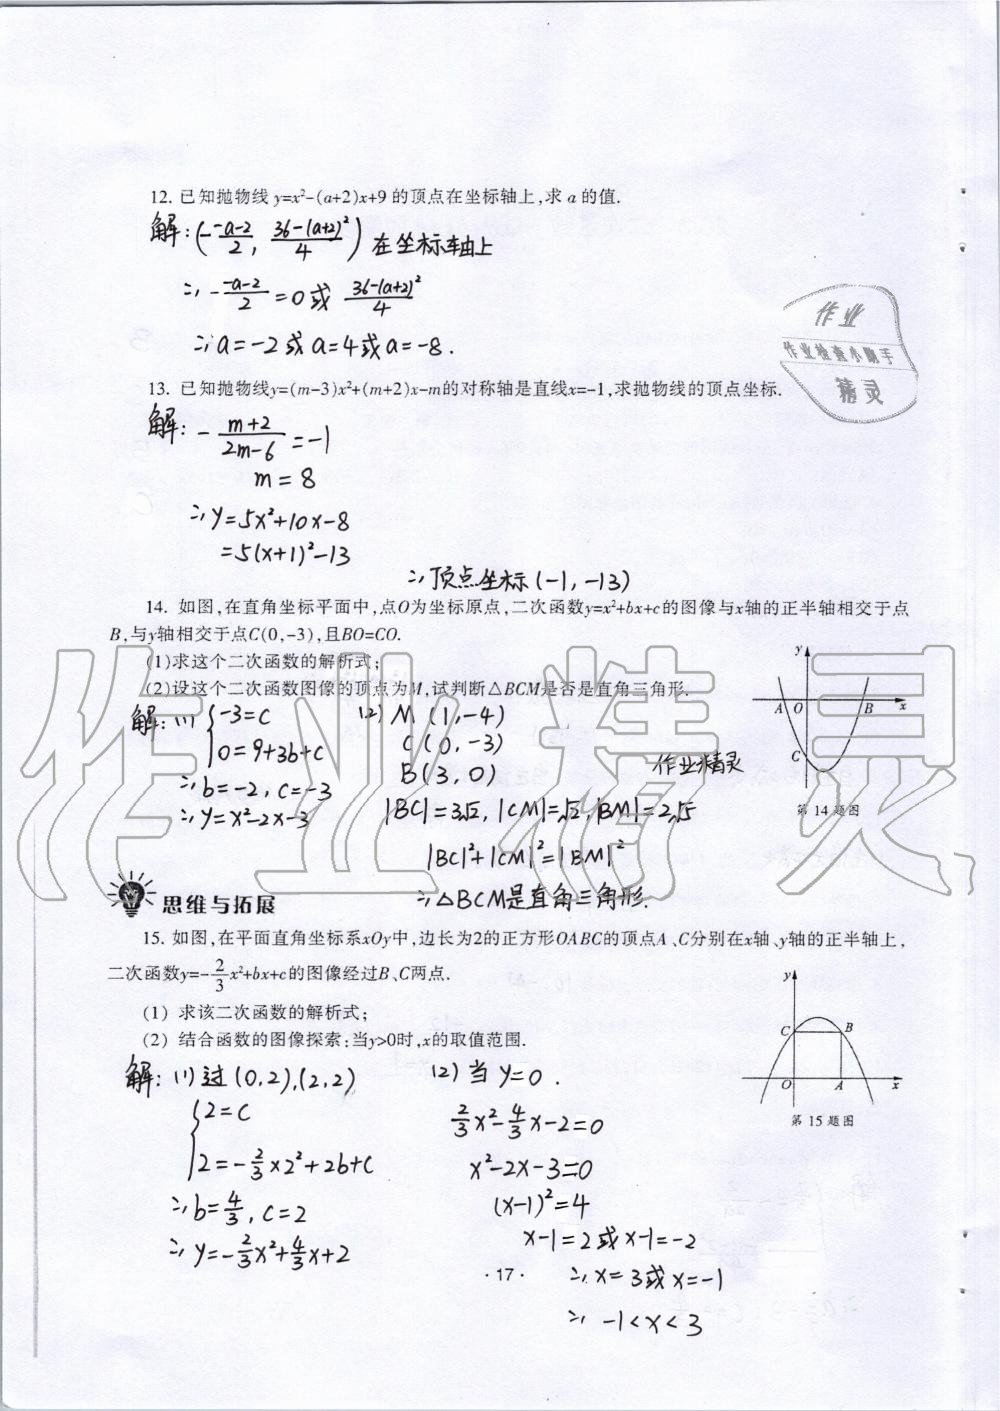 12. 已知抛物线 y=x²-(a+2)x+9 的顶点在坐标轴上,求 a 的值.
解:(-\frac{-a-2}{2}, \frac{36-(a+2)²}{4}) 在坐标轴上
∴ -\frac{-a-2}{2}=0或 \frac{36-(a+2)²}{4}
∴ a=-2或a=4或a=-8.
作业
作业检查小助手
精灵
13. 已知抛物线y=(m-3)x²+(m+2)x-m的对称轴是直线x=-1,求抛物线的顶点坐标.
解: -\frac{m+2}{2m-6}=-1
m=8
∴ y=5x²+10x-8
=5(x+1)²-13
∴ 顶点坐标(-1,-13)
14. 如图,在直角坐标平面中,点O为坐标原点,二次函数y=x²+bx+c的图像与x轴的正半轴相交于点
B,与y轴相交于点C(0,-3),且BO=CO.
(1)求这个二次函数的解析式;
(2)设这个二次函数图像的顶点为M,试判断△BCM是否是直角三角形.
解:(1) {-3=c
0=9+3b+c
∴ b=-2, c=-3
∴ y=x²-2x-3
(2) M (1,-4)
C (0,-3)
B(3,0)
|BC|=3√2, |CM|=√2, |BM|=2√5
|BC|²+|CM|²=|BM|²
∴ △BCM是直角三角形.
作业精灵
y
A O B x
C
第 14 题图
作业精灵
思维与拓展
15. 如图,在平面直角坐标系xOy中,边长为2的正方形OABC的顶点A、C分别在x轴、y轴的正半轴上,
二次函数y=-\frac{2}{3}x²+bx+c的图像经过B、C两点.
(1) 求该二次函数的解析式;
(2) 结合函数的图像探索:当y>0时,x的取值范围.
解: (1) 过(0,2),(2,2)
{2=c
2=-\frac{2}{3}×2²+2b+c
∴ b=\frac{4}{3}, c=2
∴ y=-\frac{2}{3}x²+\frac{4}{3}x+2
(2) 当 y=0.
\frac{2}{3}x²-\frac{4}{3}x-2=0
x²-2x-3=0
(x-1)²=4
x-1=2或x-1=-2
∴ x=3或x=-1
∴ -1<x<3
y
C B
O A x
第 15 题图
·17·